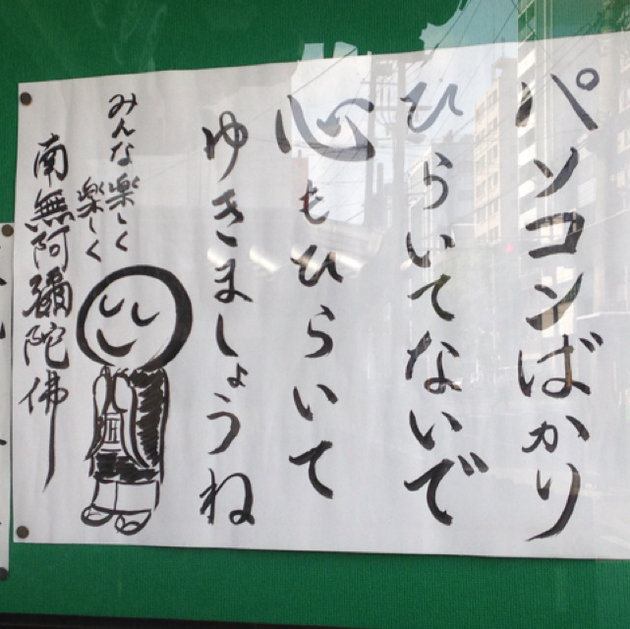 パソコンばかり
ひらいてないで
心もひらいて
ゆきましょうね
みんな楽しく
楽しく
南無阿彌陀佛